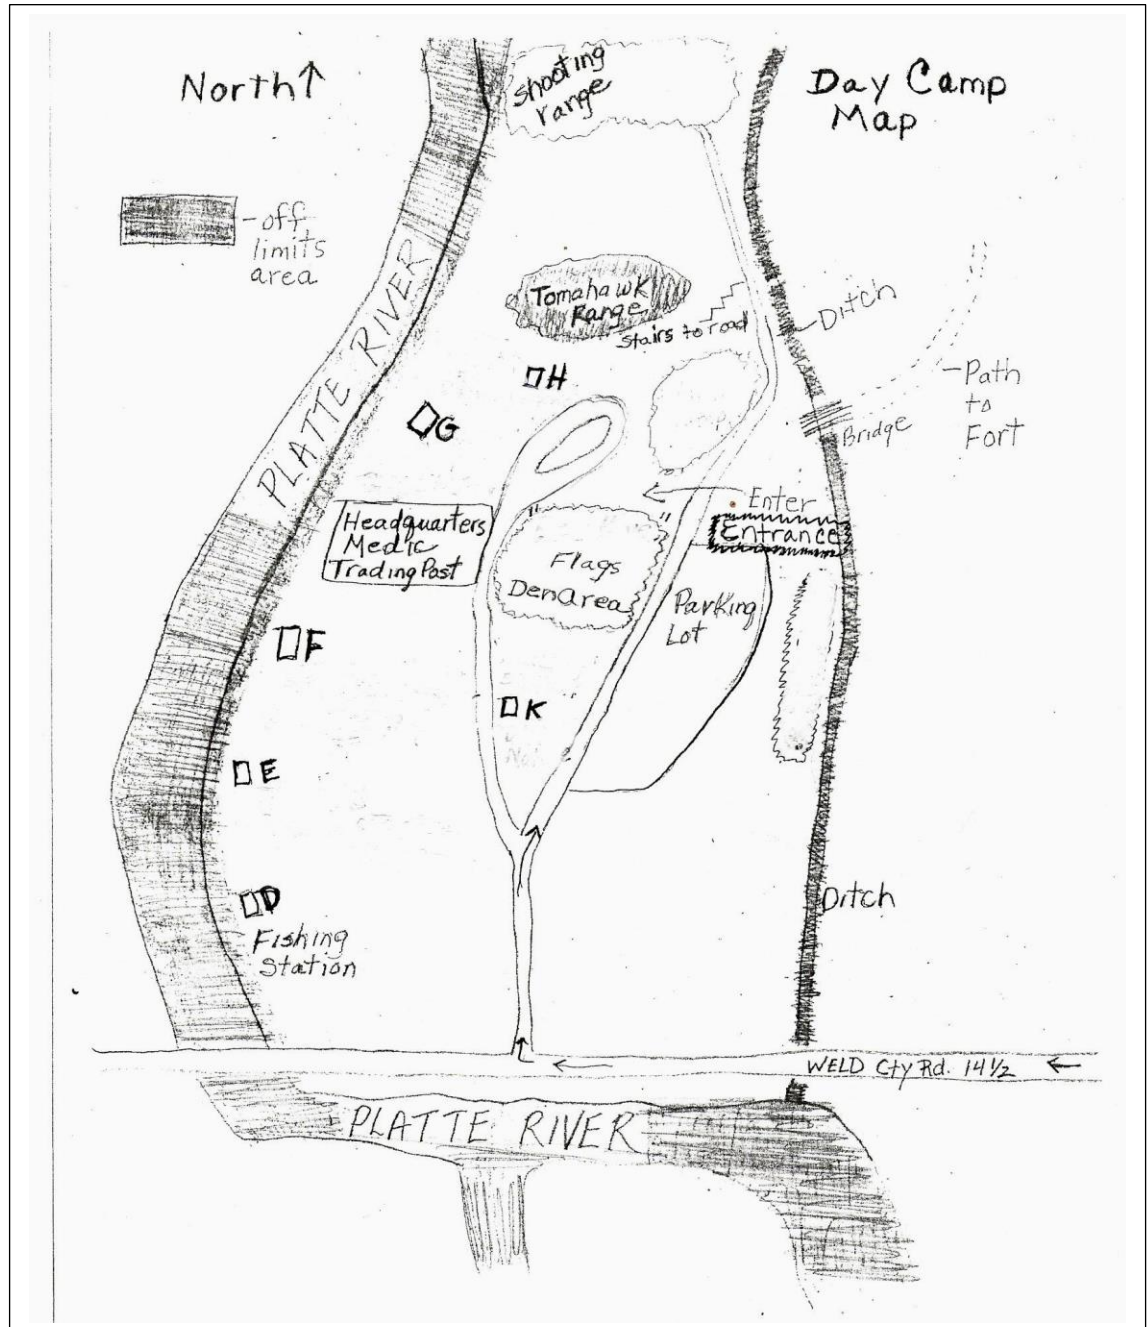 North↑
Day Camp
Map
shooting
range
-off
limits
area
PLATTE RIVER
Tomahawk
Range
Stairs to road
Ditch
H
G
-Path
to
Fort
Bridge
Enter
Entrance
Headquarters
Medic
Trading Post
Flags
Den Area
Parking
Lot
F
K
E
D
Fishing
Station
Ditch
WELD Cty Rd. 14 1/2
PLATTE RIVER